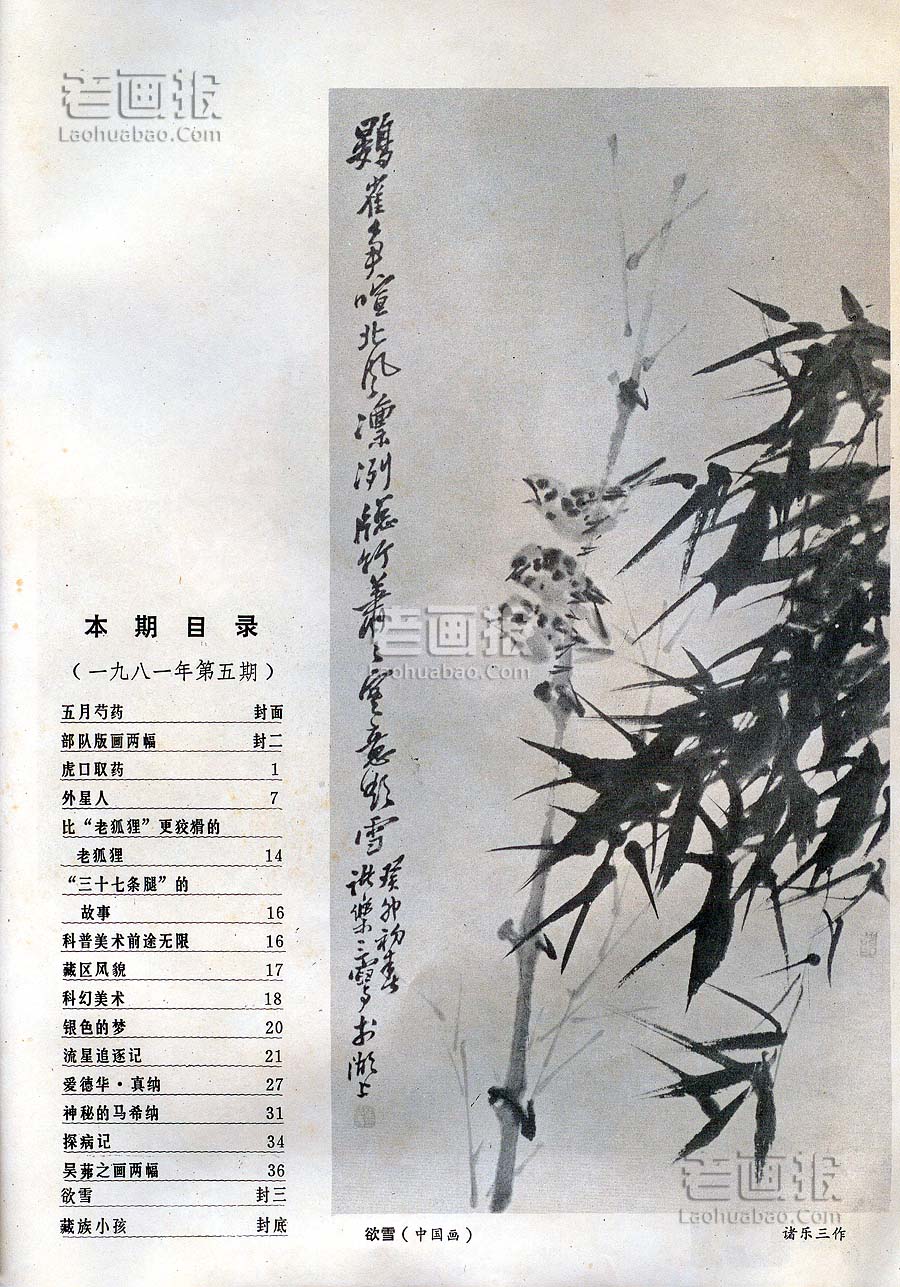 老画报
Laohuabao.Com
鷃雀争喧北风凛冽窗竹萧萧寒意欲雪
癸卯初春
诸乐三写于湖上
老画报
Laohuabao.Com
本期目录
(一九八一年第五期)
五月芍药 封面
部队版画两幅 封二
虎口取药 1
外星人 7
比“老狐狸”更狡猾的
老狐狸 14
“三十七条腿”的
故事 16
科普美术前途无限 16
藏区风貌 17
科幻美术 18
银色的梦 20
流星追逐记 21
爱德华·真纳 27
神秘的马希纳 31
探病记 34
吴茀之画两幅 36
欲雪 封三
藏族小孩 封底
老画报
Laohuabao.Com
欲雪(中国画) 诸乐三作